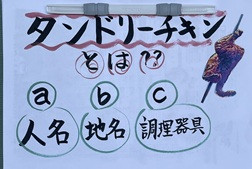 タンドリーチキン
とは??
a b c
人名 地名 調理器具